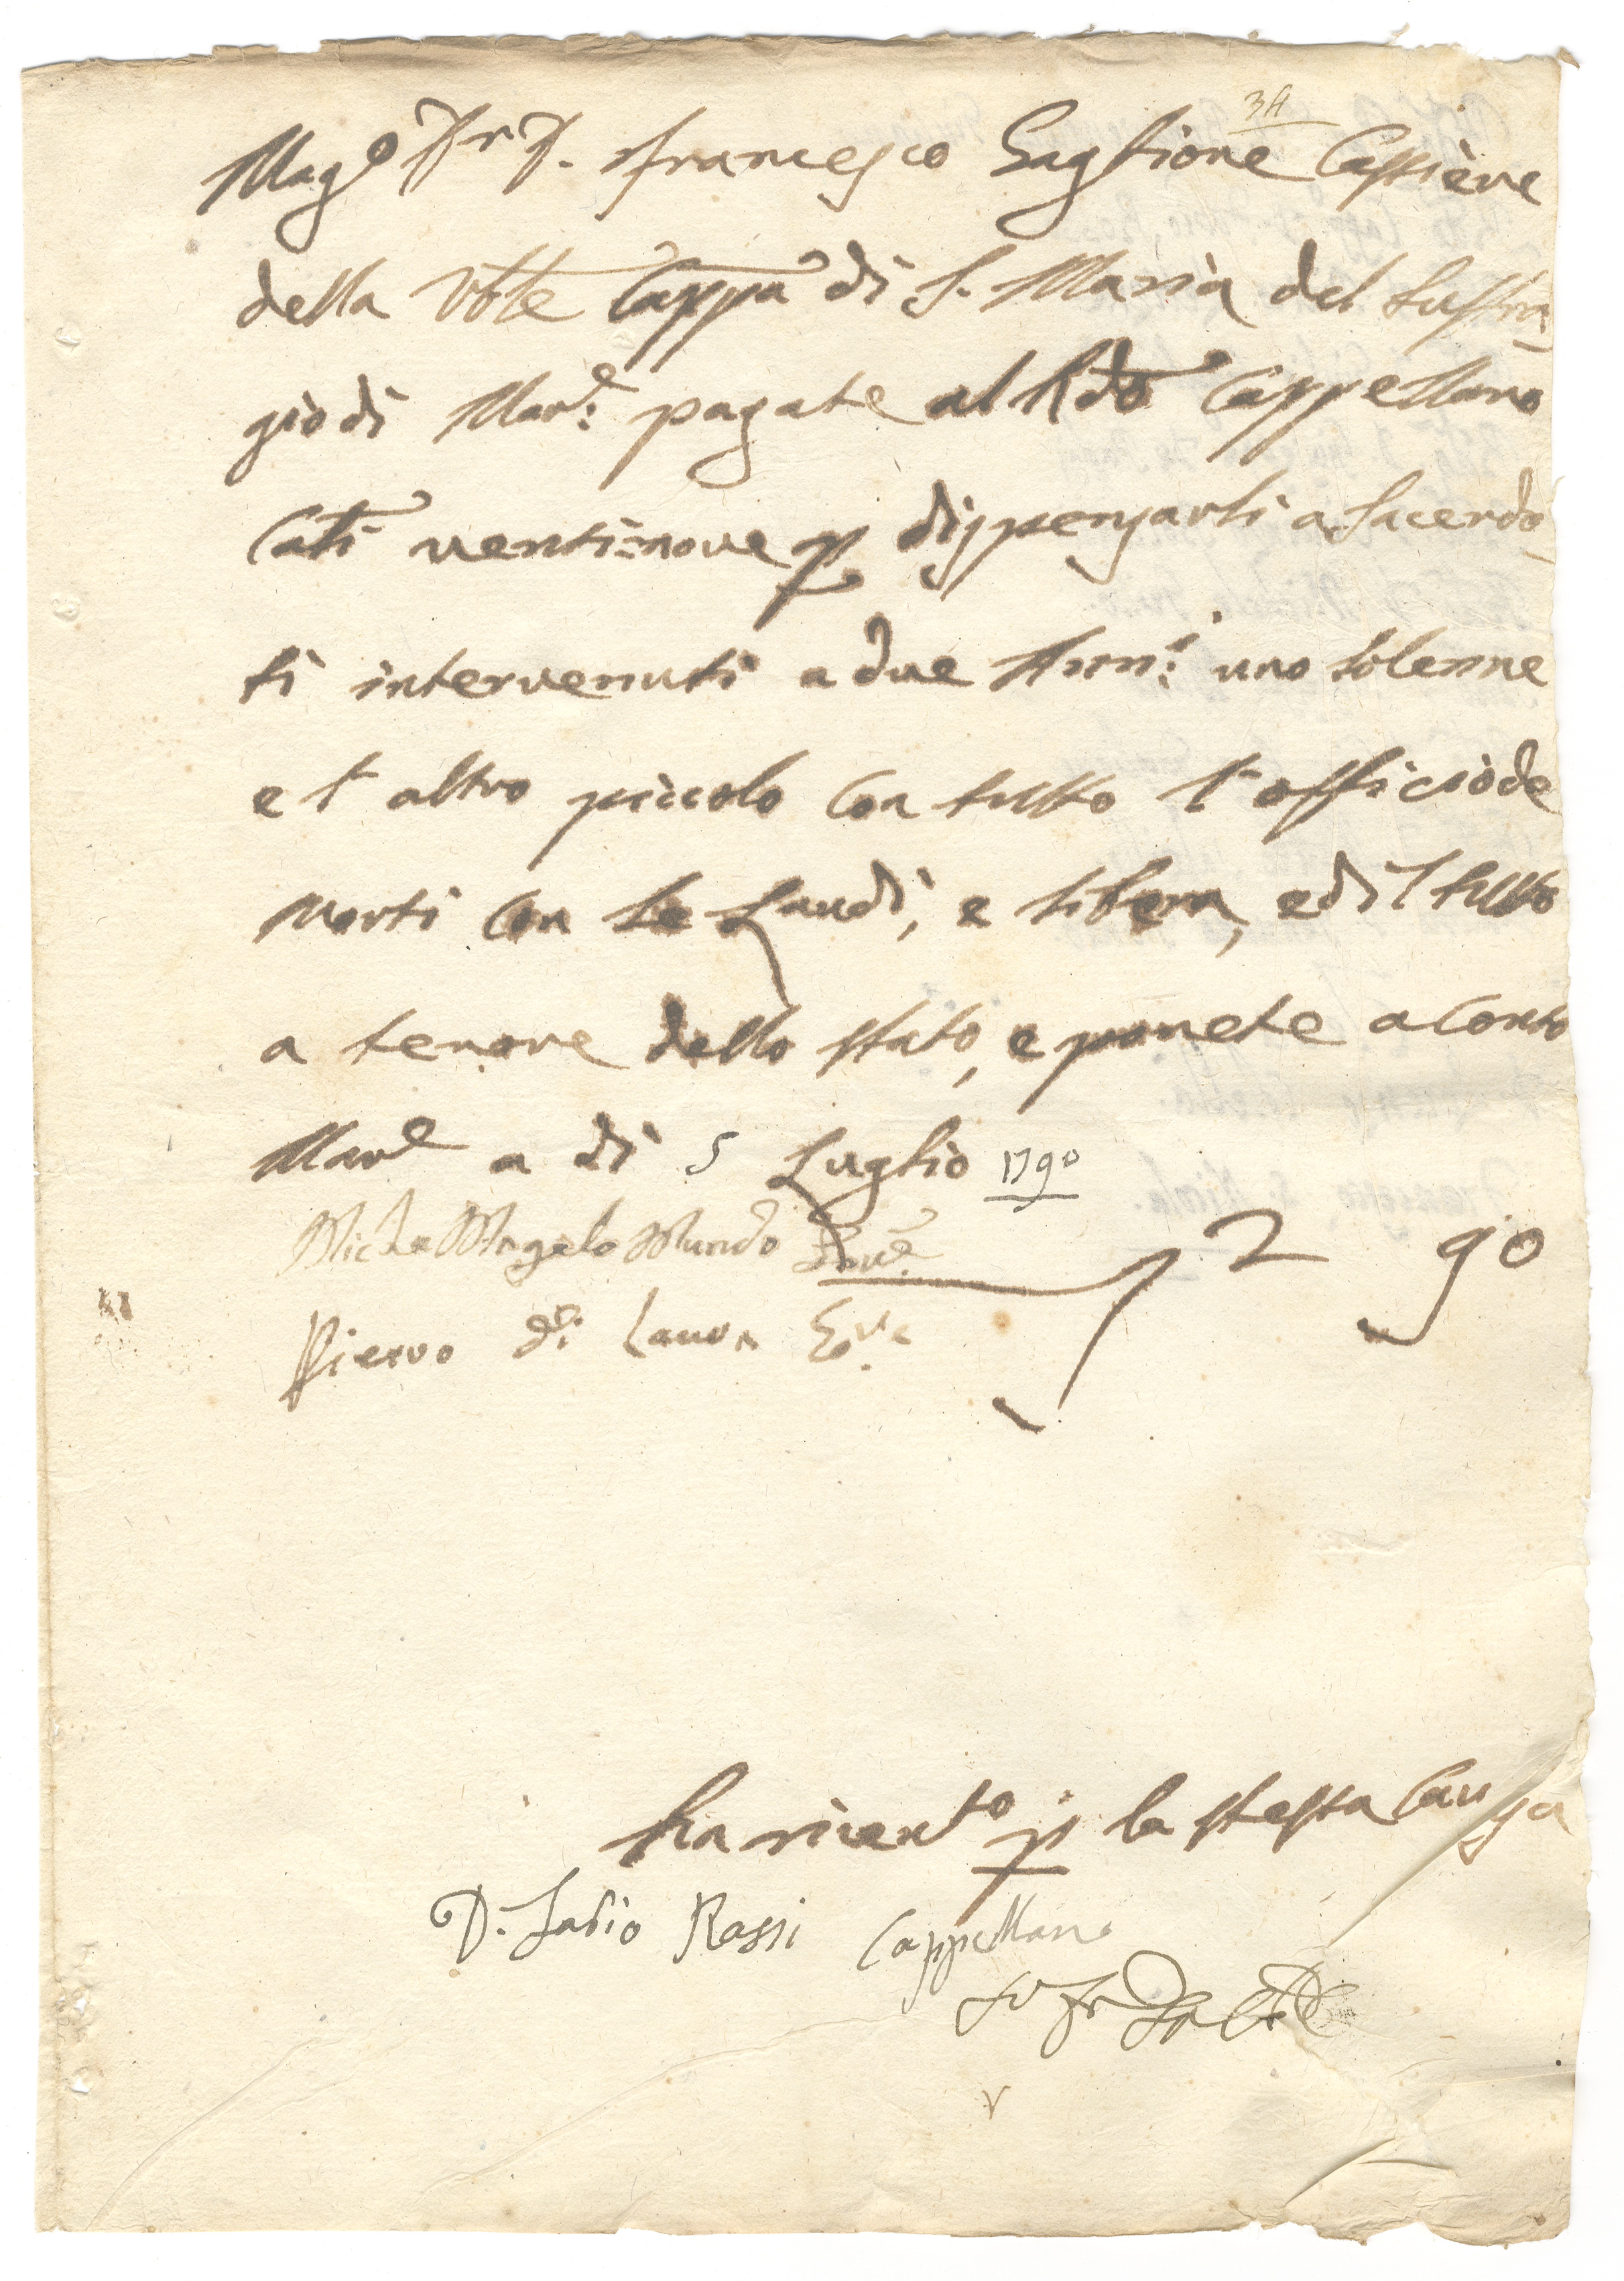 34
Mag.o Francesco Saglione Cassiere
della Ven.le Cappa di S. Maria del Suffra
gio di Mar.e pagate al Rdo Cappellano
Cati venti=nove p dispensarli a Sacerdo
ti intervenuti a due Ann.i uno solenne
e l'altro piccolo con tutto l'officio de
morti con le Laudi, e libera, ed il tutto
a tenore dello stato, e ponete a Conto
Mar.e a dì 5 Luglio 1790
Michel'Angelo Mundo 2 90
Piervo di Lauro
ha ricevuto p la stessa Causa
D. Fabio Rossi Cappellano